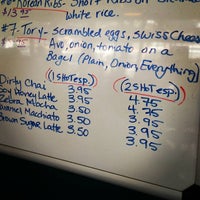 #6. Korean Ribs- Short Ribs on
$13.95 white rice.
#7. Tory- scrambled eggs, swiss chees
Avo, onion, tomato on a
Bagel (Plain, Onion, Everything)
(1 SHOT esp.) (2 SHOT esp.)
Dirty Chai 3.95 4.75
Soy Honey Latte 3.95 4.75
Zebra Mocha 3.95 4.75
Caramel Macchiato 3.50 3.95
Brown Sugar Latte 3.50 3.95
3.50 3.95